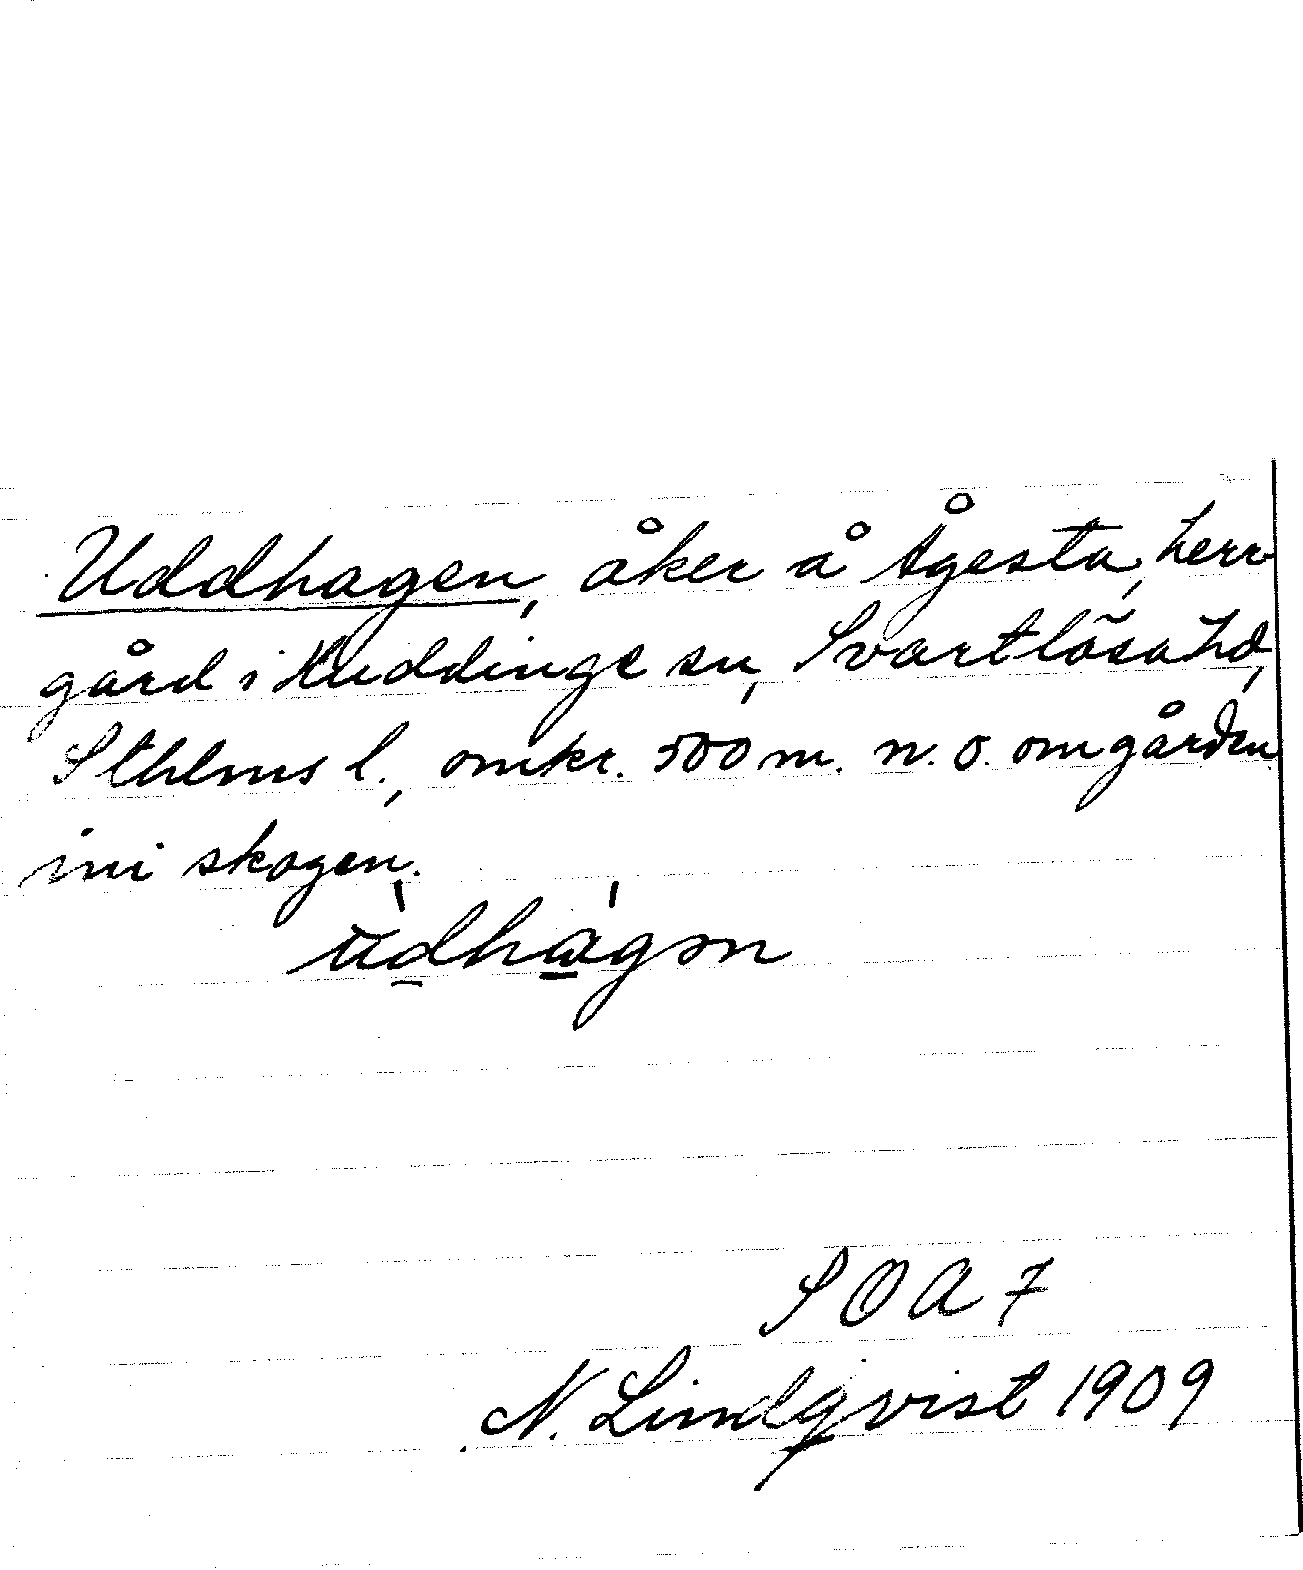 Uddhagen, åker å Ågesta, herr
gård i Huddinge sn, Svartlösa hd,
Sthlms l., omkr. 500 m. n. ö. om gården
ini skogen.
S O A 7
N. Lindqvist 1909